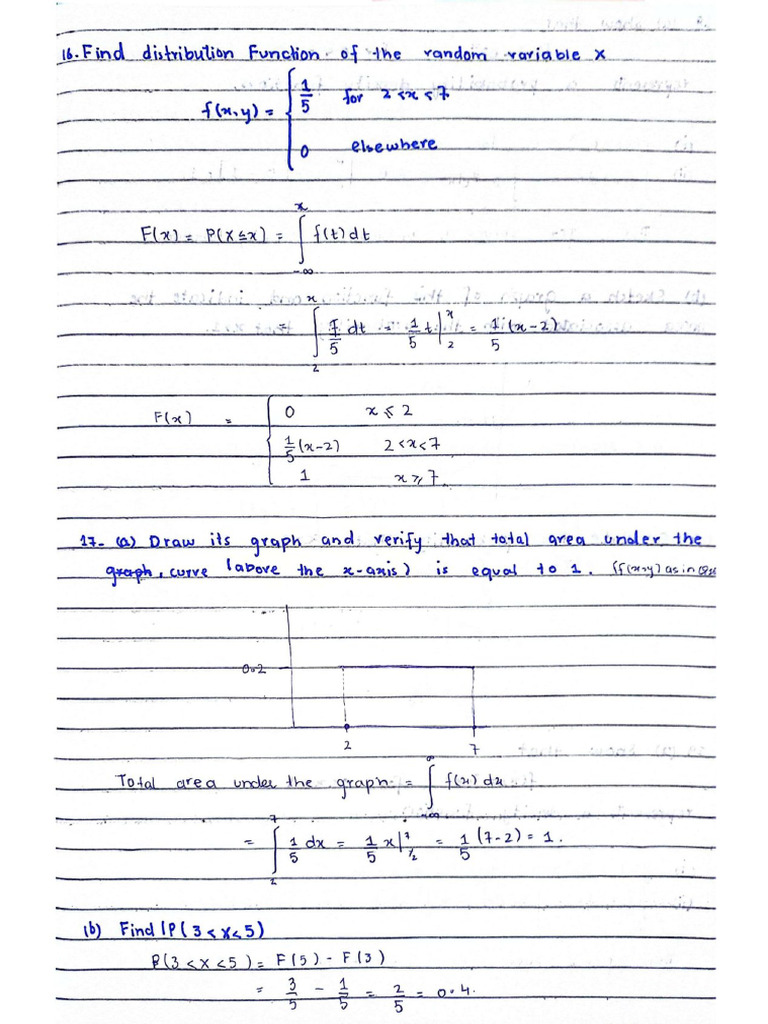 16. Find distribution Function of the random variable x
f(x,y) = { 1/5 for 2<x<7
0 elsewhere
F(x) = P(X≤x) = ∫_{-∞}^{x} f(t) dt
= ∫_{2}^{x} 1/5 dt = 1/5 t |_{2}^{x} = 1/5 (x-2)
F(x) = { 0 x ≤ 2
1/5 (x-2) 2<x<7
1 x ≥ 7.
17. (a) Draw its graph and verify that total area under the
graph, curve (above the x-axis) is equal to 1. (f(x,y) as in
0.2
2 7
Total area under the graph = ∫_{-∞}^{∞} f(x) dx
= ∫_{2}^{7} 1/5 dx = 1/5 x |_{2}^{7} = 1/5 (7-2) = 1.
(b) Find P(3<x<5)
P(3<x<5) = F(5) - F(3)
= 3/5 - 1/5 = 2/5 = 0.4.